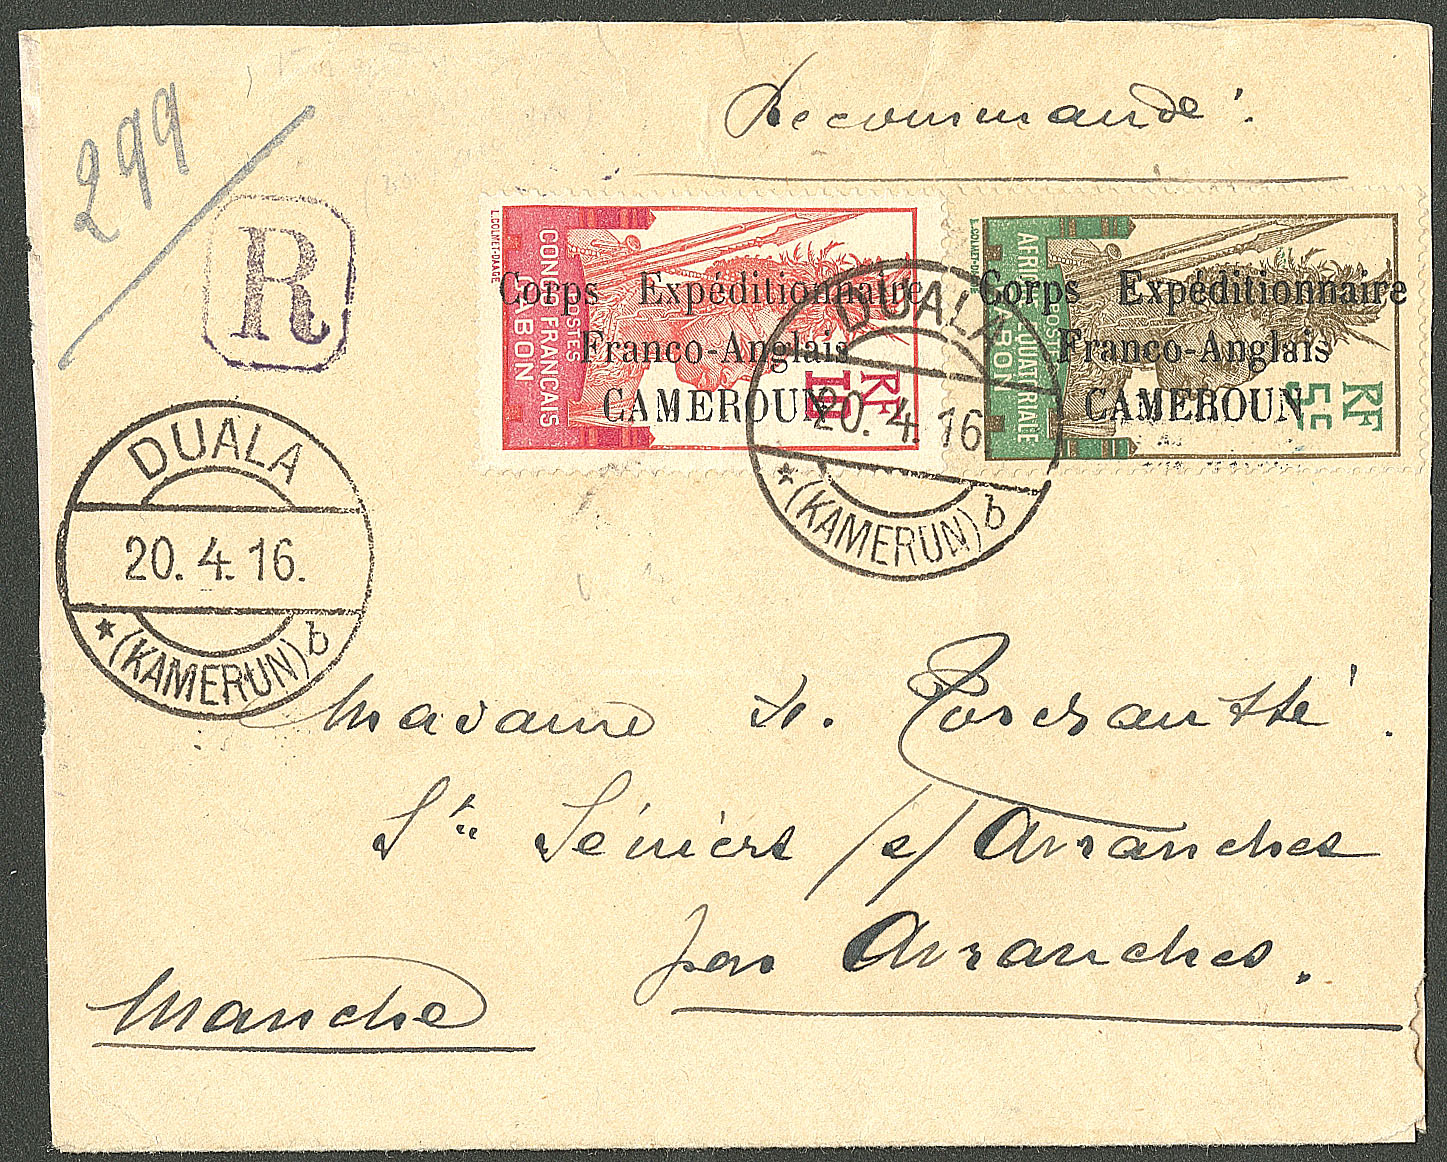 Recommandé.
299
R
L. COLMET-DAAGE
CONGO FRANÇAIS
GABON
POSTES
RF
10
Corps Expéditionnaire
Franco-Anglais
CAMEROUN
AFRIQUE ÉQUATORIALE
GABON
POSTES
RF
5c
Corps Expéditionnaire
Franco-Anglais
CAMEROUN
DUALA
20. 4. 16
(KAMERUN) b
DUALA
20. 4. 16.
(KAMERUN) b
Madame
Avranches
par Avranches.
Manche